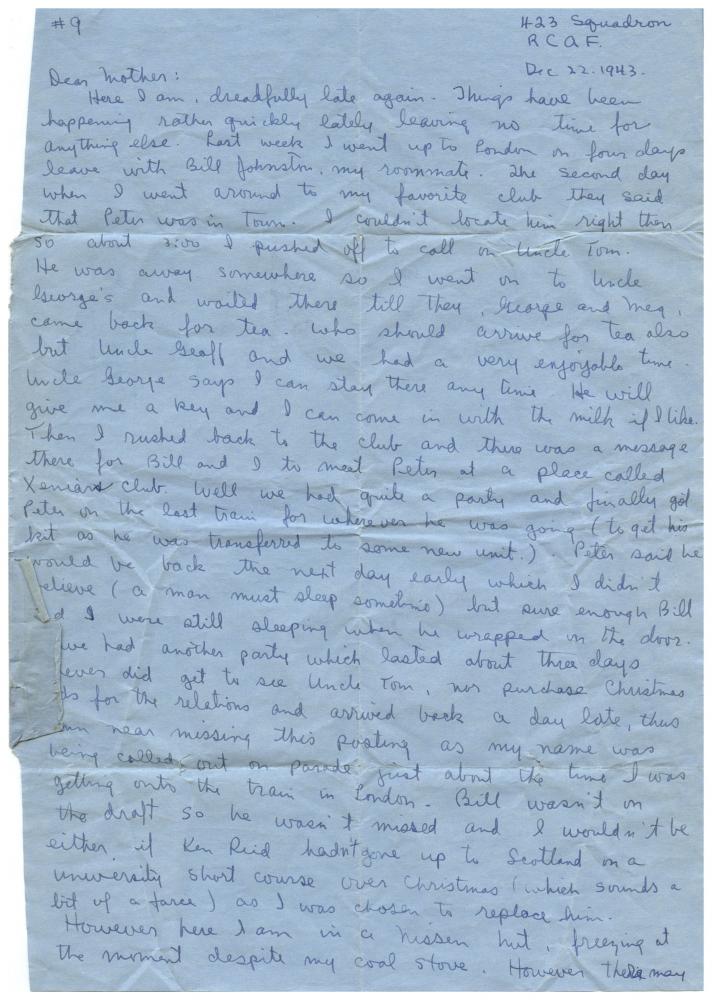 #9
423 Squadron
R C A F.
Dec 22. 1943.
Dear Mother:
Here I am, dreadfully late again. Things have been
happening rather quickly lately leaving no time for
anything else. Last week I went up to London on four days
leave with Bill Johnston, my roommate. The second day
when I went around to my favorite club they said
that Peter was in Town. I couldn't locate him right then
so about 3:00 I pushed off to call on Uncle Tom.
He was away somewhere so I went on to Uncle
George's and waited there till they, George and Meg,
came back for tea. Who should arrive for tea also
but Uncle Geoff and we had a very enjoyable time.
Uncle George says I can stay there any time. He will
give me a key and I can come in with the milk if I like.
Then I rushed back to the club and there was a message
there for Bill and I to meet Peter at a place called
club. Well we had quite a party and finally got
Peter on the last train for wherever he was going (to get his
kit as he was transferred to some new unit.). Peter said he
would be back the next day early which I didn't
elieve (a man must sleep sometime) but sure enough Bill
d I were still sleeping when he wrapped on the door.
we had another party which lasted about three days
ever did get to see Uncle Tom, nor purchase Christmas
ds for the relations and arrived back a day late, thus
mn near missing this posting as my name was
being called out on parade just about the time I was
getting onto the train in London. Bill wasn't on
the draft so he wasn't missed and I wouldn't be
either if Ken Reid hadn't gone up to Scotland on a
university short course over Christmas (which sounds a
bit of a farce) as I was chosen to replace him.
However here I am in a Nissen hut, freezing at
the moment despite my coal stove. However there may